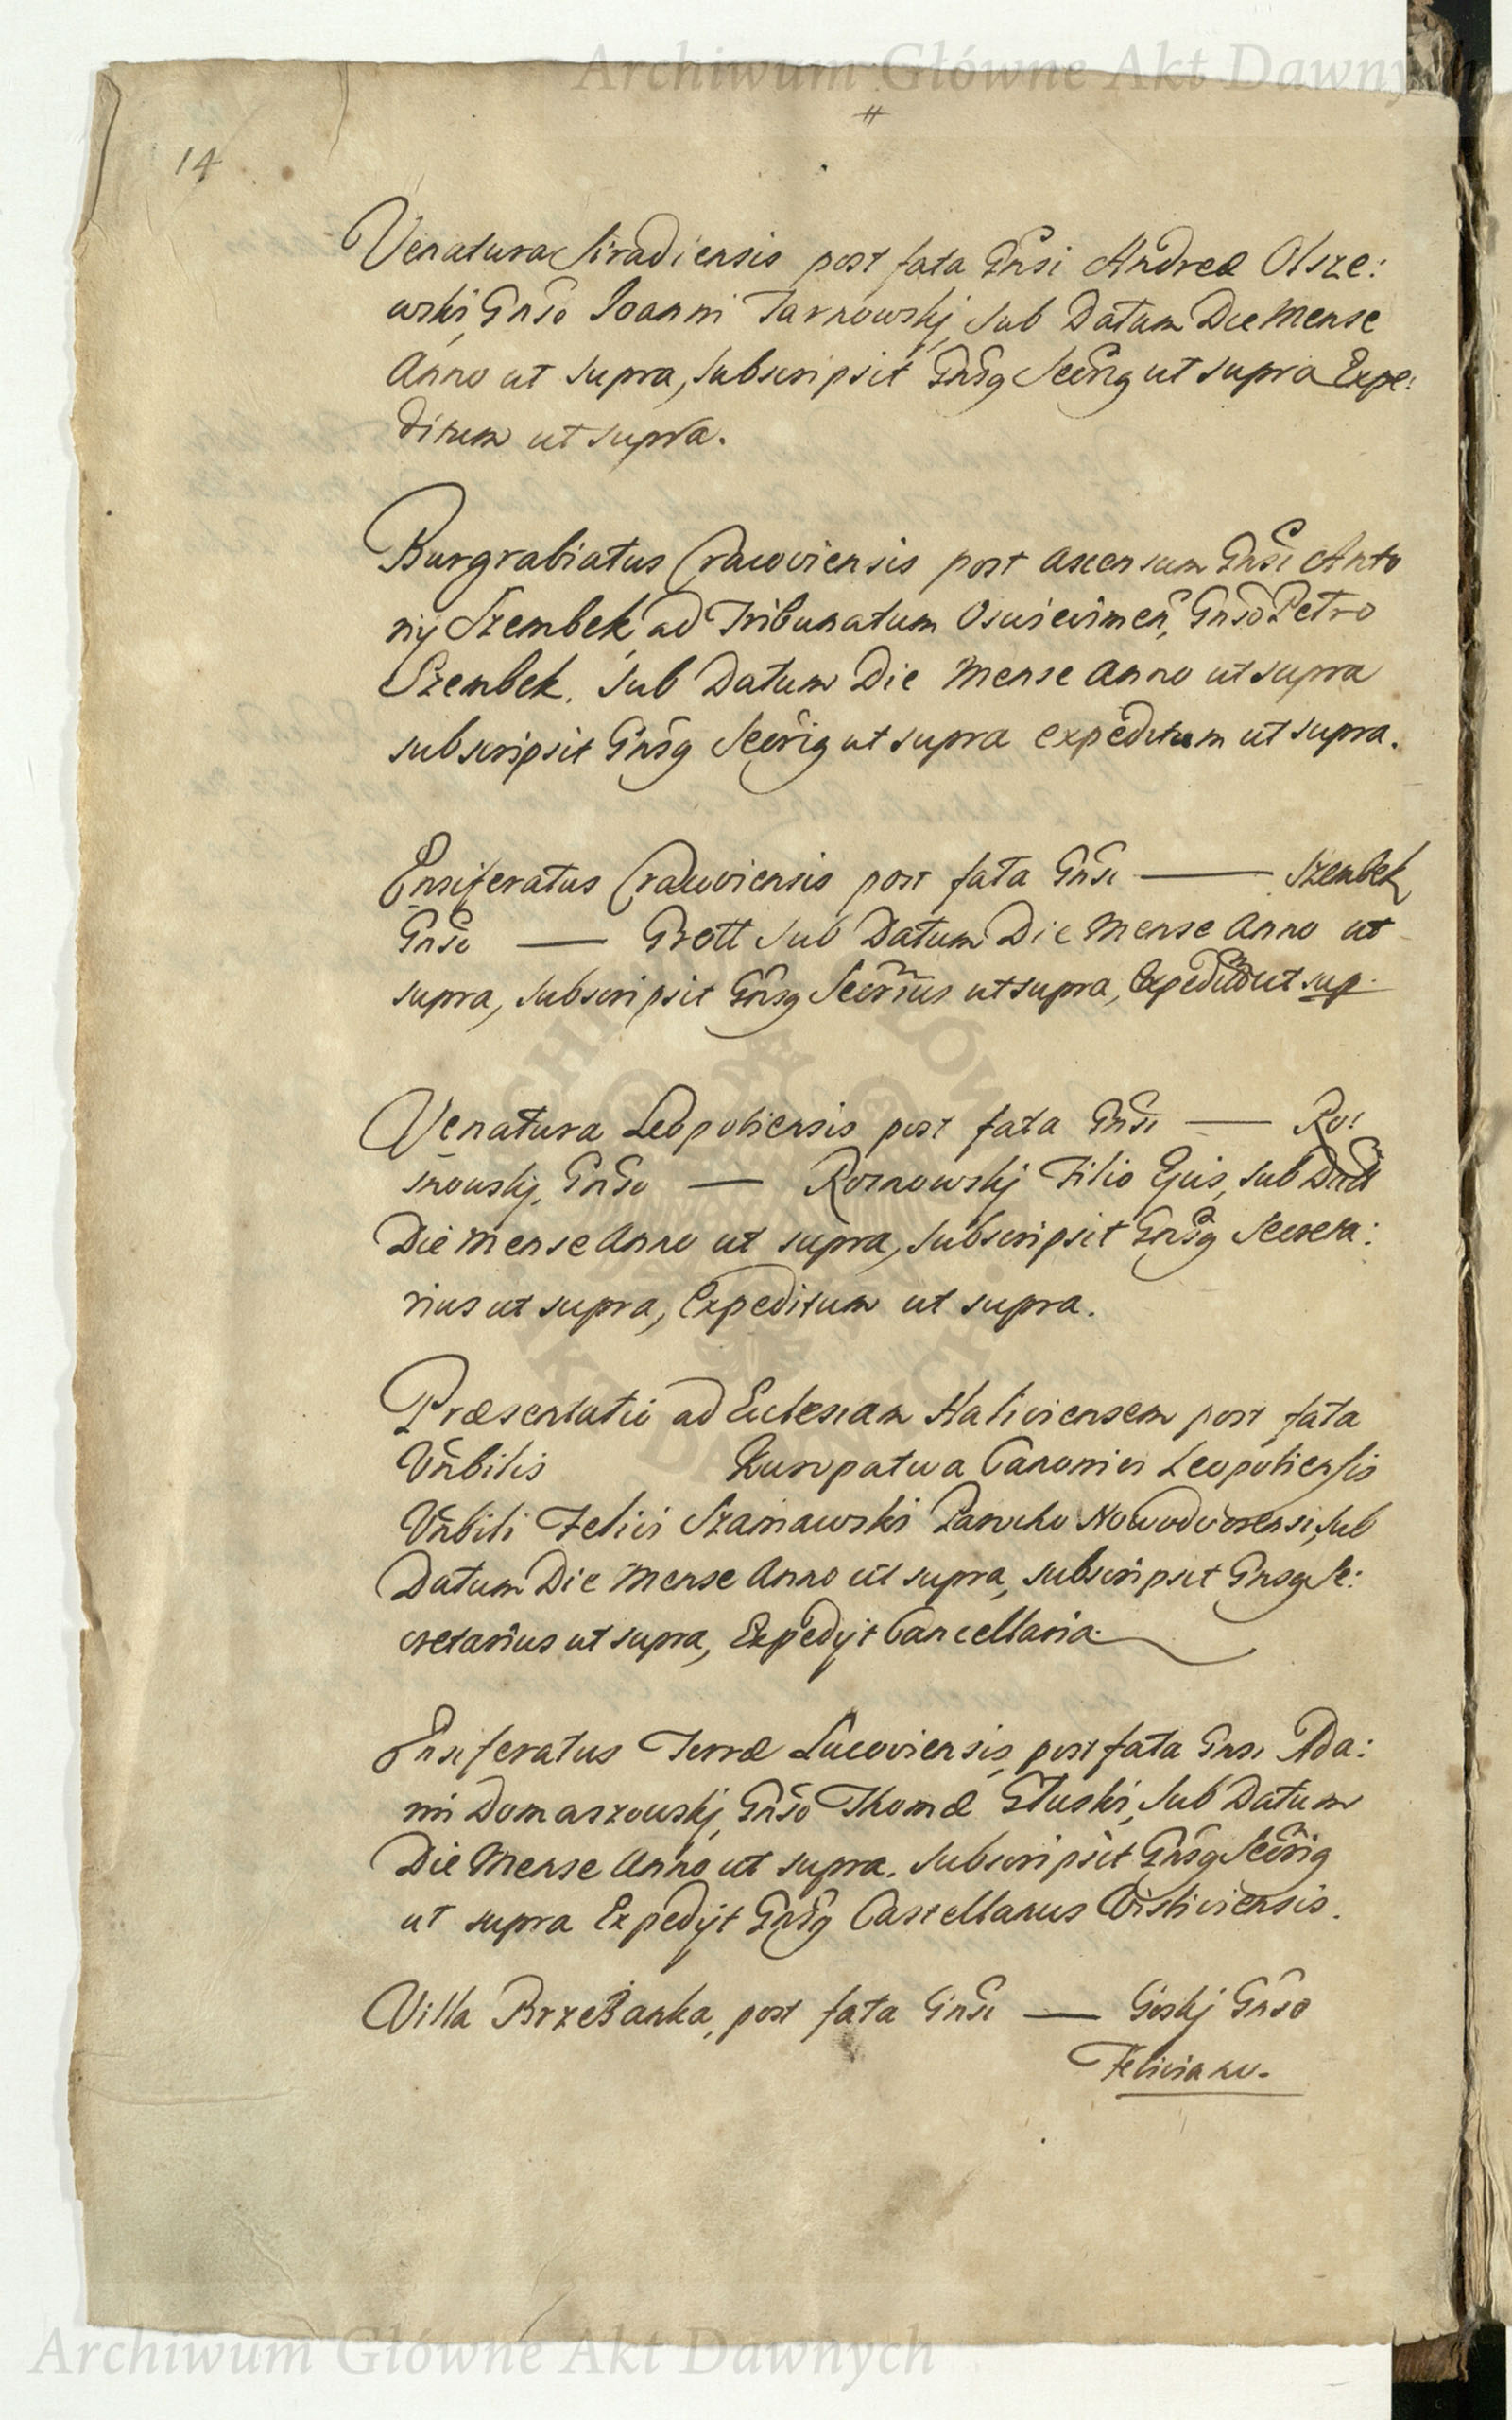 Archiwum Główne Akt Dawnych
#
14
Venatura Siradiensis post fata Gñsi Andreæ Olsze:
wski, Gñso Joanni Tarnowskj, sub Datum Die Mense
Anno ut supra, subscripsit Gñsg Secrig ut supra Expe:
ditum ut supra.
Burgrabiatus Cracoviensis post ascensum Gñsi Anto
nij Szembek, ad Tribunatum Osviecimeñ, Gñso Petro
Szembek. sub Datum Die Mense Anno ut supra
subscripsit Gñsg Secrig ut supra expeditum ut supra.
Ensiferatus Cracoviensis post fata Gñsi — Szembek
Gñso — Grott sub Datum Die Mense Anno ut
supra, subscripsit Gñsg Secrius ut supra, Expeditũ ut sup.
Venatura Leopoliensis post fata Gñsi — Ro:
snowskj, Gñso — Rosnowskj Filio Ejus, sub
Die Mense Anno ut supra, subscripsit Gñsg Secreta:
rius ut supra, Expeditum ut supra.
Præsentatio ad Eclesiam Haliciensem post fata
Vñbilis Kuropatwa Canonici Leopoliensis
Vñbili Felici Szaniawski Parocho Nowodworensi, sub
Datum Die Mense Anno ut supra, subscripsit Gnsg Se:
cretarius ut supra, Expedijt Cancellaria.
Ensiferatus Terræ Lucoviensis, post fata Gnsi Ada:
mi Domaszowskj, Gñso Thomæ Głuski, sub Datum
Die Mense Anno ut supra. subscripsit Gñsg Secrig
ut supra Expedijt Gñsg Castellanus Visliciensis.
Villa Brzeżanka, post fata Gñsi — Goskj Gñso
Feliciano.
Archiwum Główne Akt Dawnych